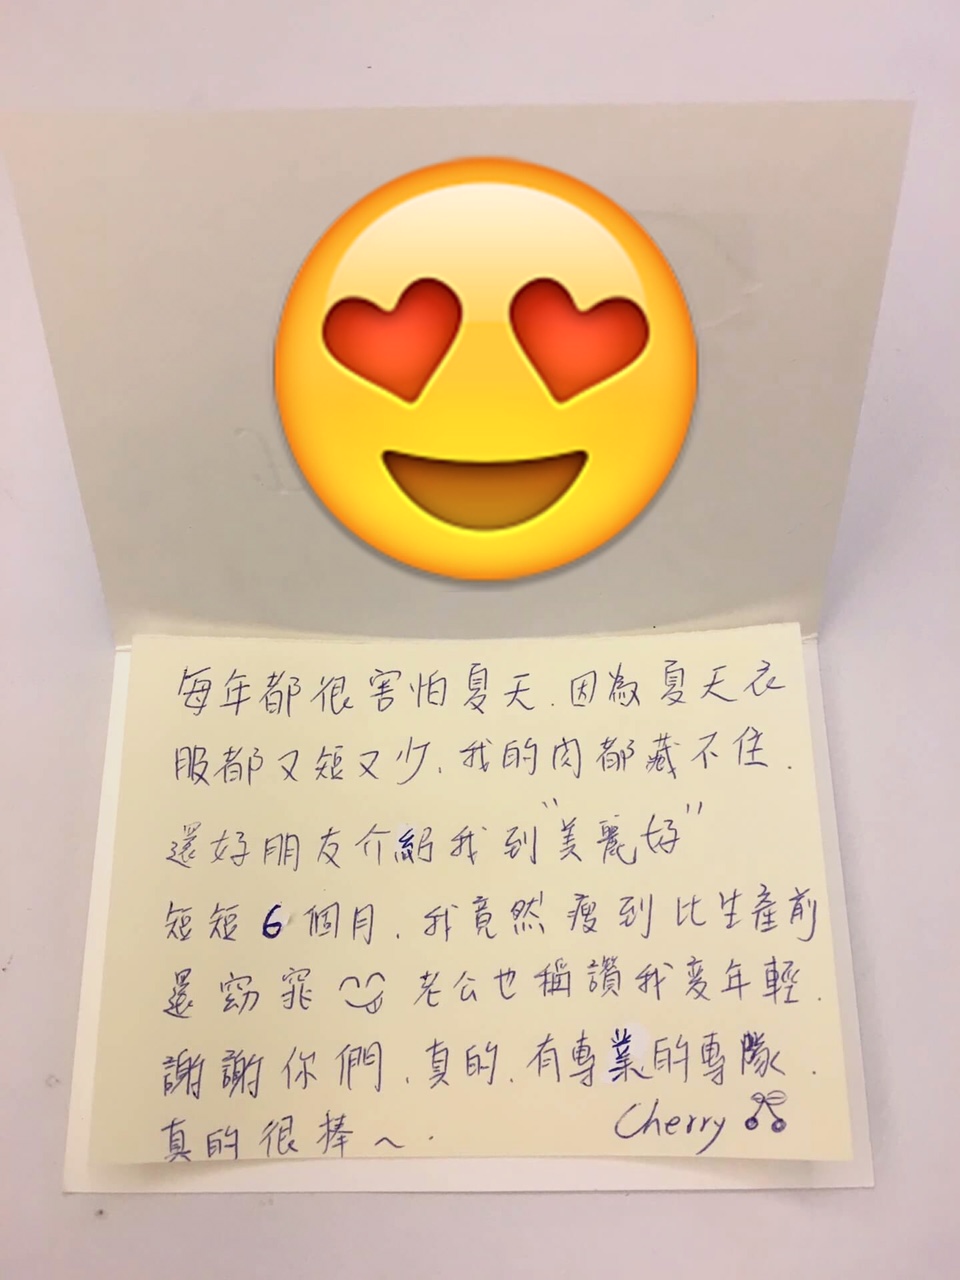 每年都很害怕夏天.因為夏天衣
服都又短又少,我的肉都藏不住.
還好朋友介紹我到"美麗好"
短短6個月,我竟然瘦到比生產前
還窈窕 老公也稱讚我變年輕.
謝謝你們,真的,有專業的專隊.
真的很棒~.
Cherry